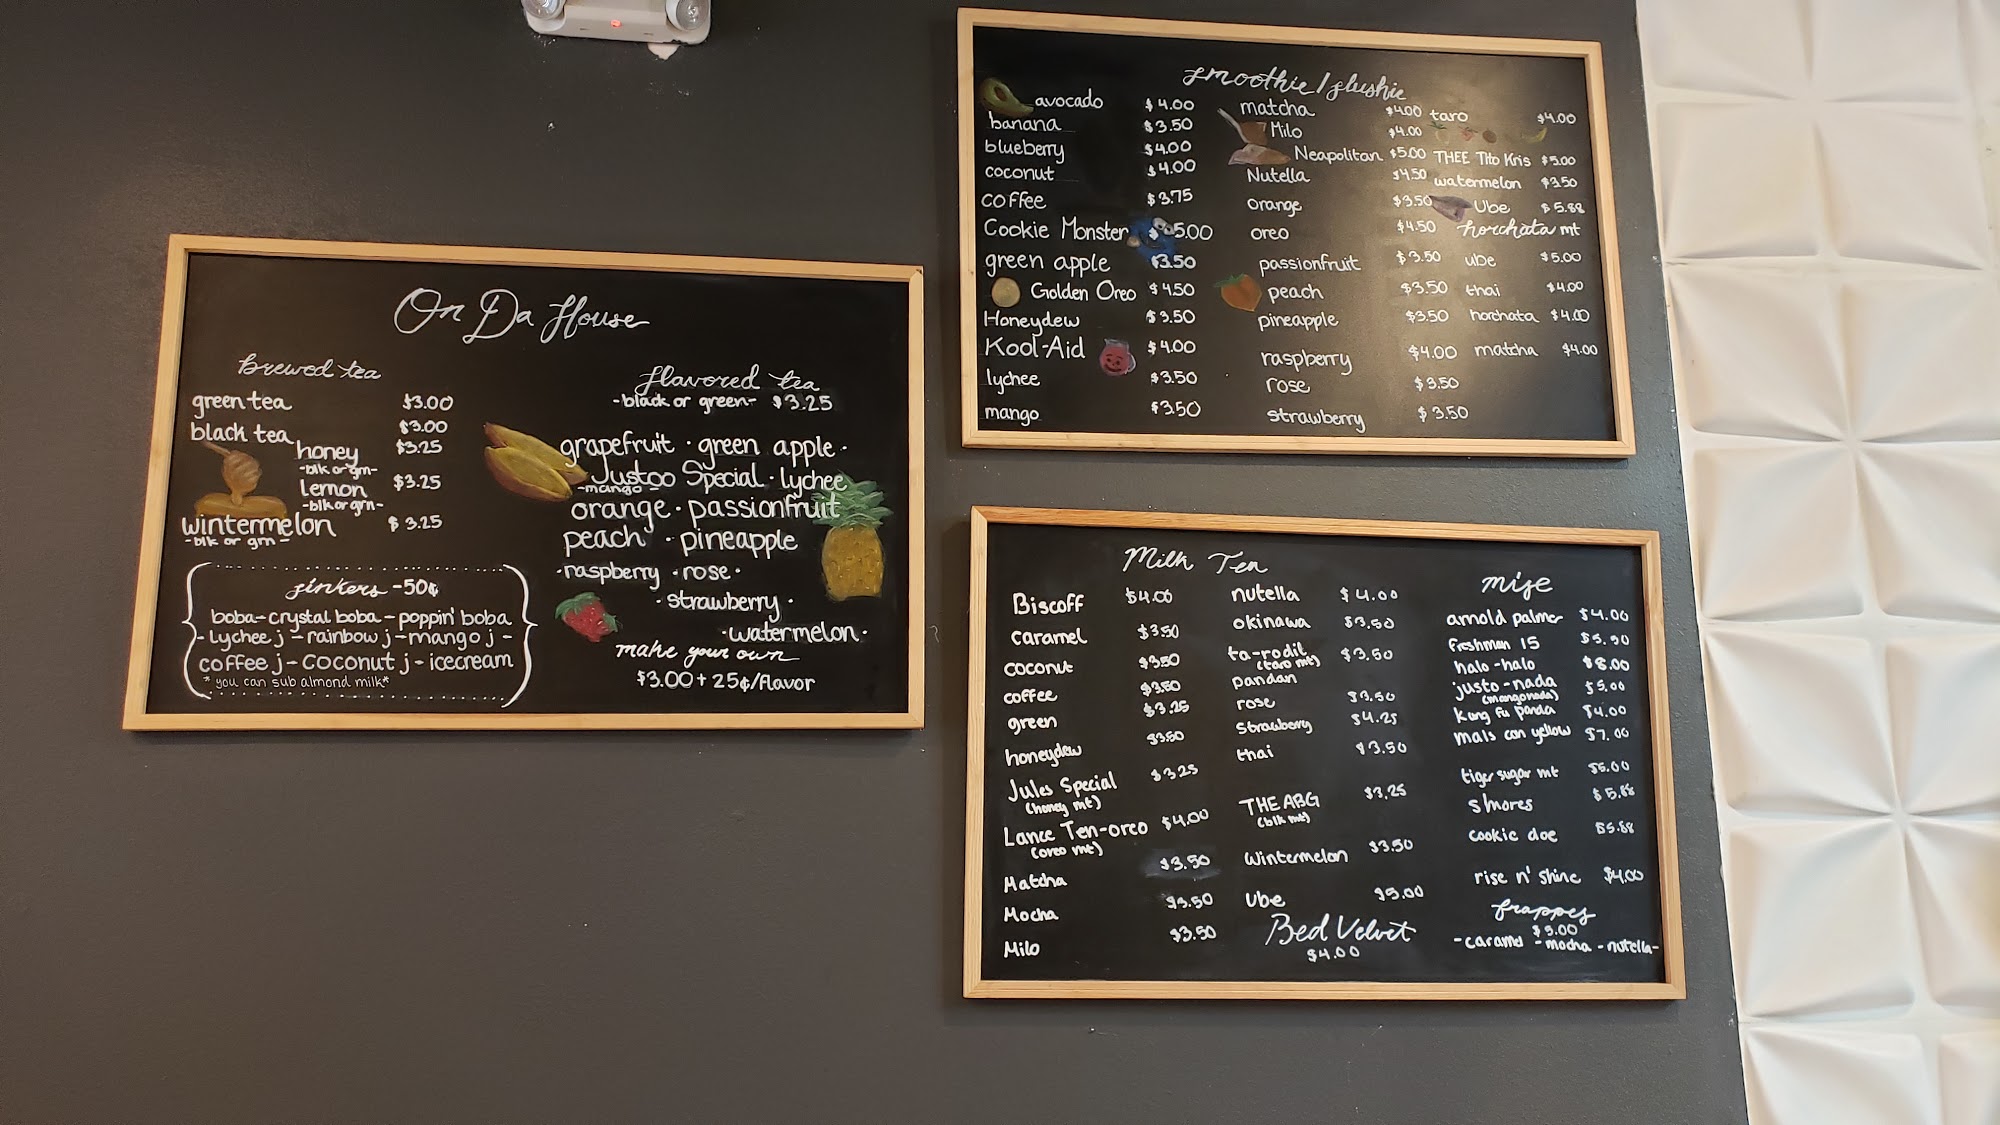 On Da House
brewed tea
green tea $3.00
black tea $3.00
honey $3.25
-blk or grn-
lemon $3.25
-blk or grn-
wintermelon $3.25
-blk or grn-
sinkers -50¢
boba-crystal boba-poppin' boba
-Lychee j-rainbow j-mango j-
coffee j-coconut j-icecream
*you can sub almond milk*
flavored tea
-black or green- $3.25
grapefruit · green apple ·
Justoo Special · lychee
-mango-
orange · passionfruit
peach · pineapple
·raspberry · rose ·
· strawberry ·
·watermelon·
make your own
$3.00 + 25¢/flavor
smoothie/slushie
avocado $4.00
banana $3.50
blueberry $4.00
coconut $4.00
coffee $3.75
Cookie Monster $5.00
green apple $3.50
Golden Oreo $4.50
Honeydew $3.50
Kool-Aid $4.00
lychee $3.50
mango $3.50
matcha $4.00
Milo $4.00
Neapolitan $5.00
Nutella $4.50
orange $3.50
oreo $4.50
passionfruit $3.50
peach $3.50
pineapple $3.50
raspberry $4.00
rose $3.50
strawberry $3.50
taro $4.00
THEE Tito Kris $5.00
watermelon $3.50
Ube $5.88
horchata mt
ube $5.00
thai $4.00
horchata $4.00
matcha $4.00
Milk Tea
Biscoff $4.00
caramel $3.50
coconut $3.50
coffee $3.50
green $3.25
honeydew $3.50
Jules Special $3.25
(honey mt)
Lance Ten-oreo $4.00
(oreo mt)
Matcha $3.50
Mocha $3.50
Milo $3.50
nutella $4.00
okinawa $3.50
ta-rodil $3.50
(taro mt)
pandan
rose $3.50
strawberry $4.25
thai $3.50
THE ABG $3.25
(blk mt)
Wintermelon $3.50
Ube $5.00
Bed Velvet
$4.00
misc
arnold palmer $4.00
freshman 15 $5.50
halo-halo $8.00
justo-nada $5.00
(mangonada)
kung fu panda $4.00
mals con yellow $7.00
tiger sugar mt $5.00
s'mores $5.88
cookie doe $5.88
rise n' shine $4.00
frappes
$5.00
-caramel -mocha -nutella-